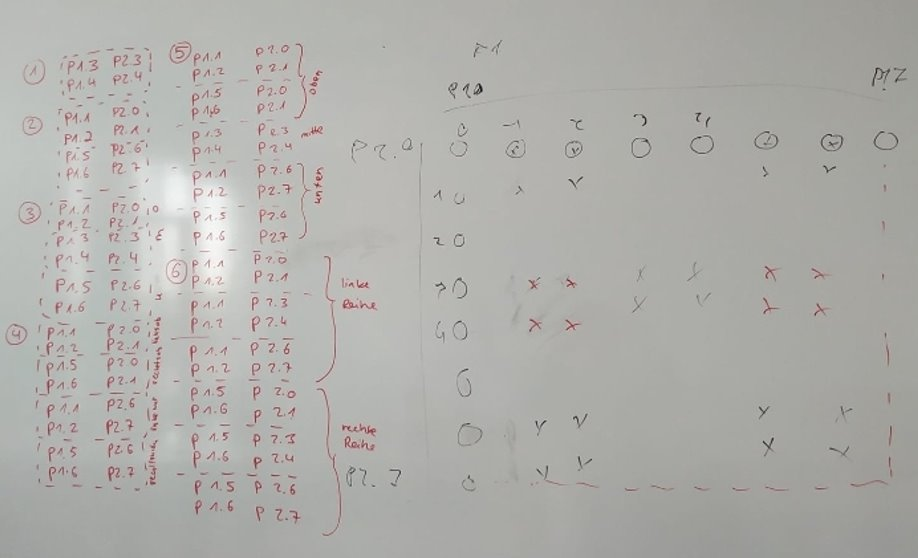 1
P1.3 P2.3
P1.4 P2.4
2
P1.1 P2.0
P1.2 P2.1
P1.5 P2.6
P1.6 P2.7
3
P1.1 P2.0
P1.2 P2.1
P1.3 P2.3
P1.4 P2.4
P1.5 P2.6
P1.6 P2.7
4
P1.1 P2.0
P1.2 P2.1
P1.5 P2.0
P1.6 P2.1
P1.1 P2.6
P1.2 P2.7
P1.5 P2.6
P1.6 P2.7
5
P1.1 P2.0
P1.2 P2.1
P1.5 P2.0
P1.6 P2.1
oben
P1.3 P2.3
P1.4 P2.4
mitte
P1.1 P2.6
P1.2 P2.7
P1.5 P2.6
P1.6 P2.7
unten
6
P1.1 P2.0
P1.2 P2.1
P1.1 P2.3
P1.2 P2.4
P1.1 P2.6
P1.2 P2.7
linke
Reihe
P1.5 P2.0
P1.6 P2.1
P1.5 P2.3
P1.6 P2.4
P1.5 P2.6
P1.6 P2.7
rechte
Reihe
P1.0
P2.0
0 1 2 3 4
1
2